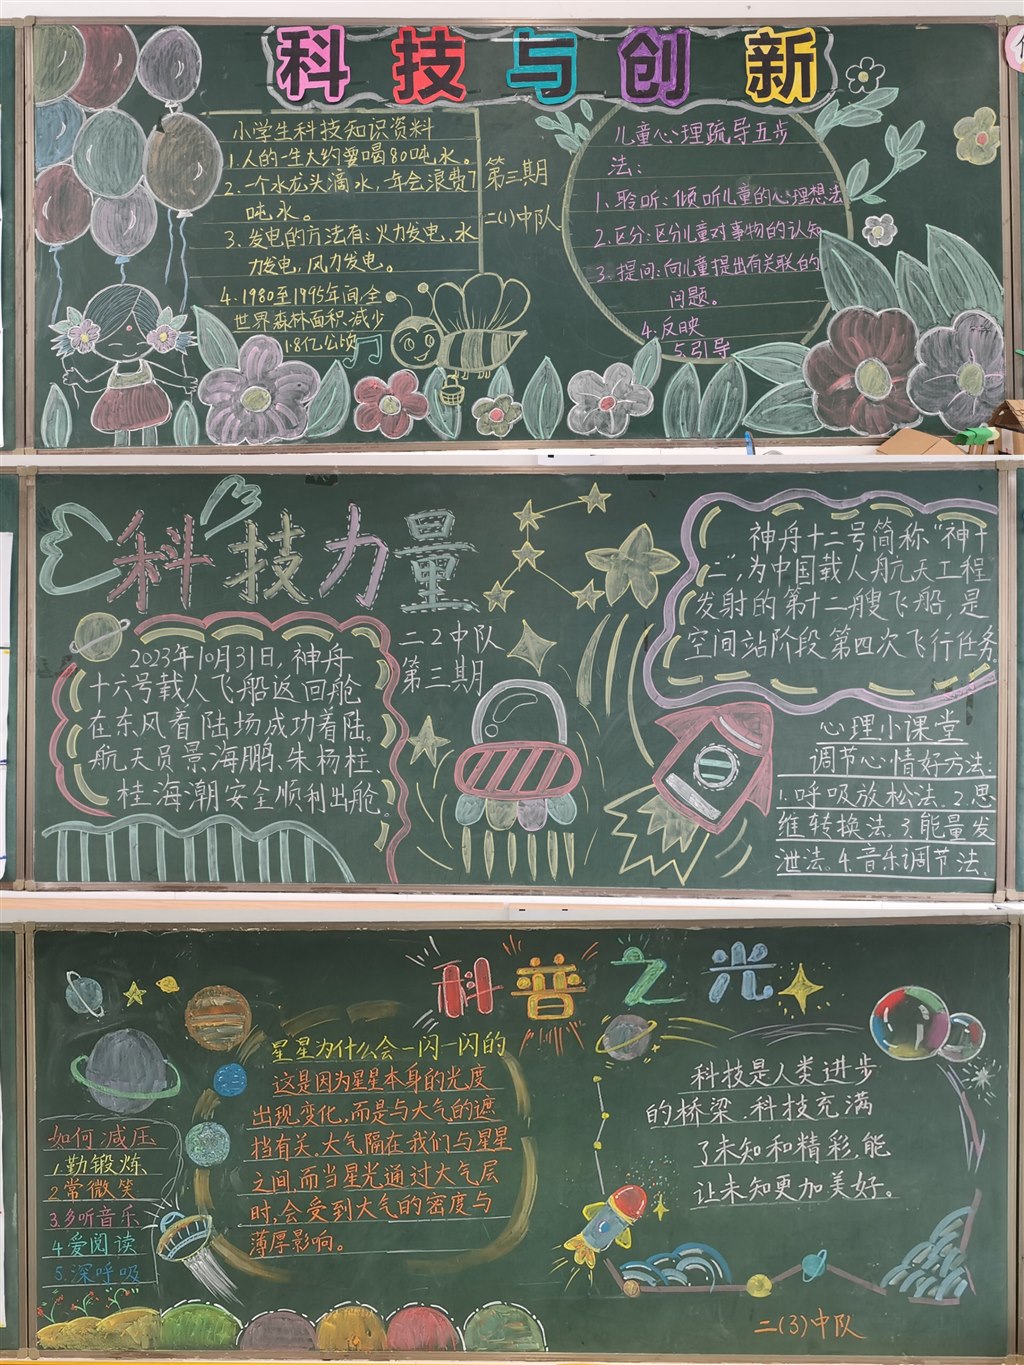 科技与创新
小学生科技知识资料
1.人的一生大约要喝80吨水。
2.一个水龙头滴水,一年会浪费7
吨水。
3.发电的方法有:火力发电,水
力发电,风力发电。
4.1980至1995年间,全
世界森林面积减少
1.8亿公顷
第三期
二(1)中队
儿童心理疏导五步
法:
1.聆听:倾听儿童的心理想法
2.区分:区分儿童对事物的认知
3.提问:向儿童提出有关联的
问题。
4.反映
5.引导
科技力量
二2中队
第三期
2023年10月31日,神舟
十六号载人飞船返回舱
在东风着陆场成功着陆。
航天员景海鹏、朱杨柱、
桂海潮安全顺利出舱。
神舟十二号简称“神十
二”,为中国载人航天工程
发射的第十二艘飞船,是
空间站阶段第四次飞行任务
心理小课堂
调节心情好方法:
1.呼吸放松法.2.思
维转换法.3.能量发
泄法.4.音乐调节法.
科普之光
星星为什么会一闪一闪的
这是因为星星本身的光度
出现变化,而是与大气的遮
挡有关.大气隔在我们与星星
之间,而当星光通过大气层
时,会受到大气的密度与
薄厚影响。
如何减压
1.勤锻炼
2常微笑
3.多听音乐
4.爱阅读
5.深呼吸
科技是人类进步
的桥梁.科技充满
了未知和精彩,能
让未知更加美好。
二(3)中队